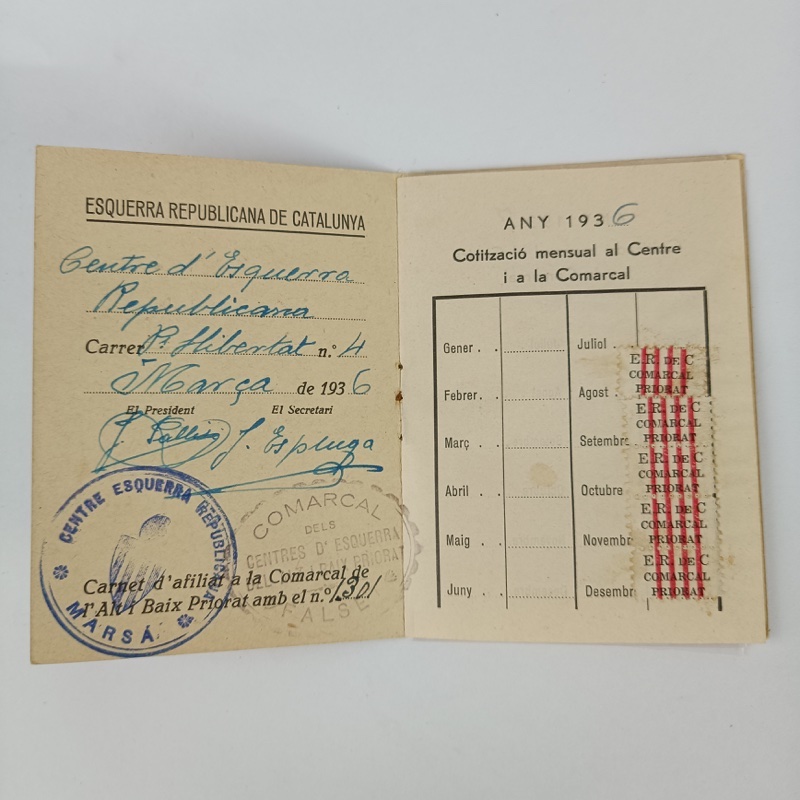 ESQUERRA REPUBLICANA DE CATALUNYA
Centre d'Esquerra
Republicana
Carrer Pi Llibertat n.º 4
Març de 1936
El President El Secretari
J. Espluga
CENTRE ESQUERRA REPUBLICANA
MARSÁ
COMARCAL
DELS
CENTRES D'ESQUERRA
DE L'ALT I BAIX PRIORAT
FALSET
Carnet d'afiliat a la Comarcal de
l'Alt i Baix Priorat amb el n.º 1301
ANY 1936
Cotització mensual al Centre
i a la Comarcal
Gener . . Juliol .
Febrer. . Agost .
Març . . Setembre
Abril . . Octubre
Maig . . Novembre
Juny . . Desembre
E.R. DE C
COMARCAL
PRIORAT
E.R. DE C
COMARCAL
PRIORAT
E.R. DE C
COMARCAL
PRIORAT
E.R. DE C
COMARCAL
PRIORAT
E.R. DE C
COMARCAL
PRIORAT